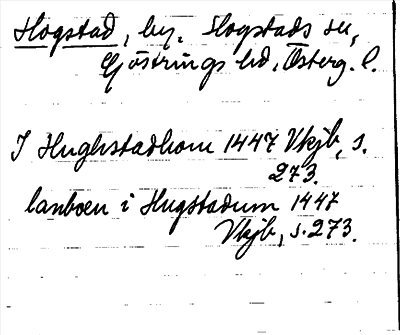 Hogstad, by. Hogstads sn,
Göstrings hd, Österg. l.
I Hughstadhom 1447 Vkjb, s.
273.
lanboen i Hugstadum 1447
Vkjb, s. 273.